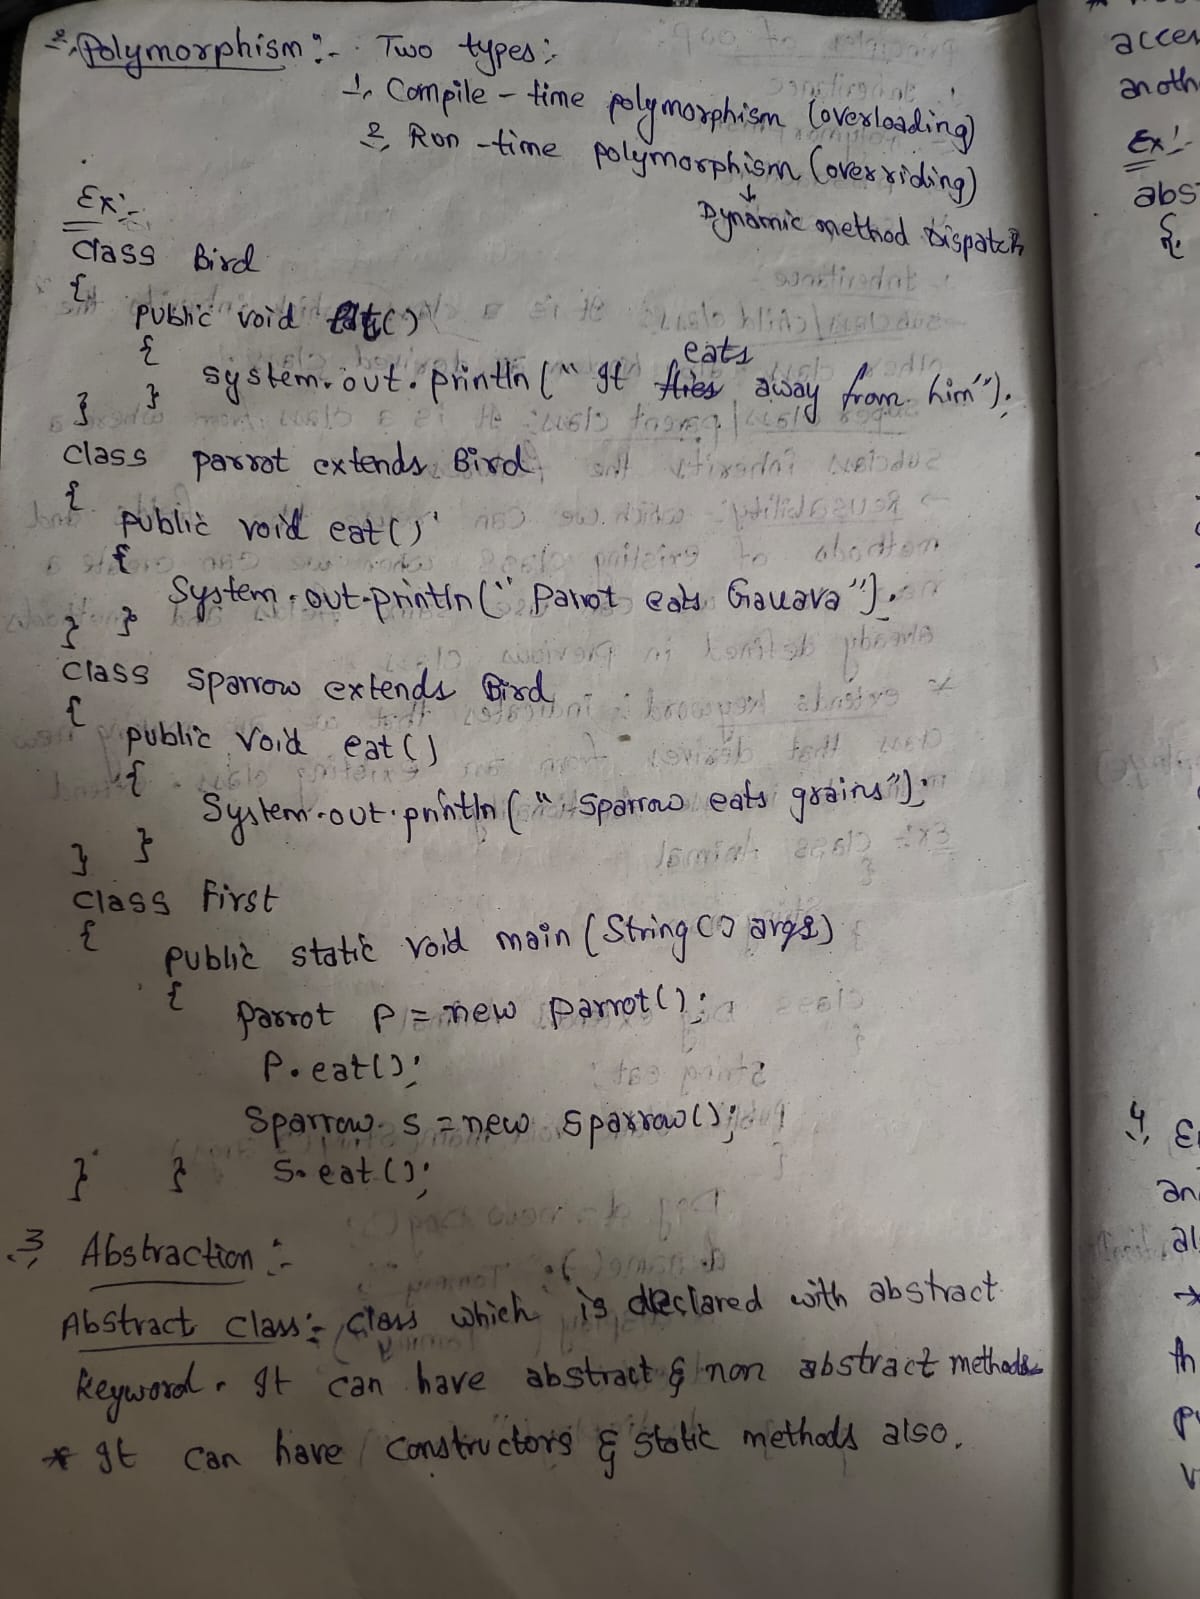 2. Polymorphism :- Two types :-
1. Compile - time polymorphism (overloading)
2. Run - time polymorphism (overriding)
↓
Dynamic method Dispatch
Ex:-
Class Bird
{
public void eat()
{
eats
System.out.println(" It flies away from him");
} }
Class parrot extends Bird
{
public void eat()
{
System.out.println(" Parrot eats Gauava");
} }
Class Sparrow extends Bird
{
public void eat()
{
System.out.println(" Sparrow eats grains");
} }
Class First
{
public static void main (String[] args)
{ parrot p = new parrot();
P.eat();
Sparrow s = new Sparrow();
} } S.eat();
3. Abstraction :-
Abstract Class :- Class which is declared with abstract
keyword. It can have abstract & non abstract methods
* It can have constructors & static methods also.
Ex:-
{
4.